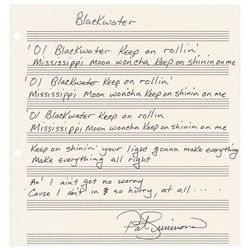 Blackwater
'Ol Blackwater keep on rollin'
Mississippi Moon woncha keep on shinin on me
'Ol Blackwater keep on rollin'
Mississippi Moon woncha keep on shinin on me
'Ol Blackwater keep on rollin
Mississippi Moon woncha keep on shinin on me
Keep on shinin' your light gonna make everything
Make everything all right
An' I ain't got no worry
'Cause I ain't in no hurry, at all...
Pat Simmons